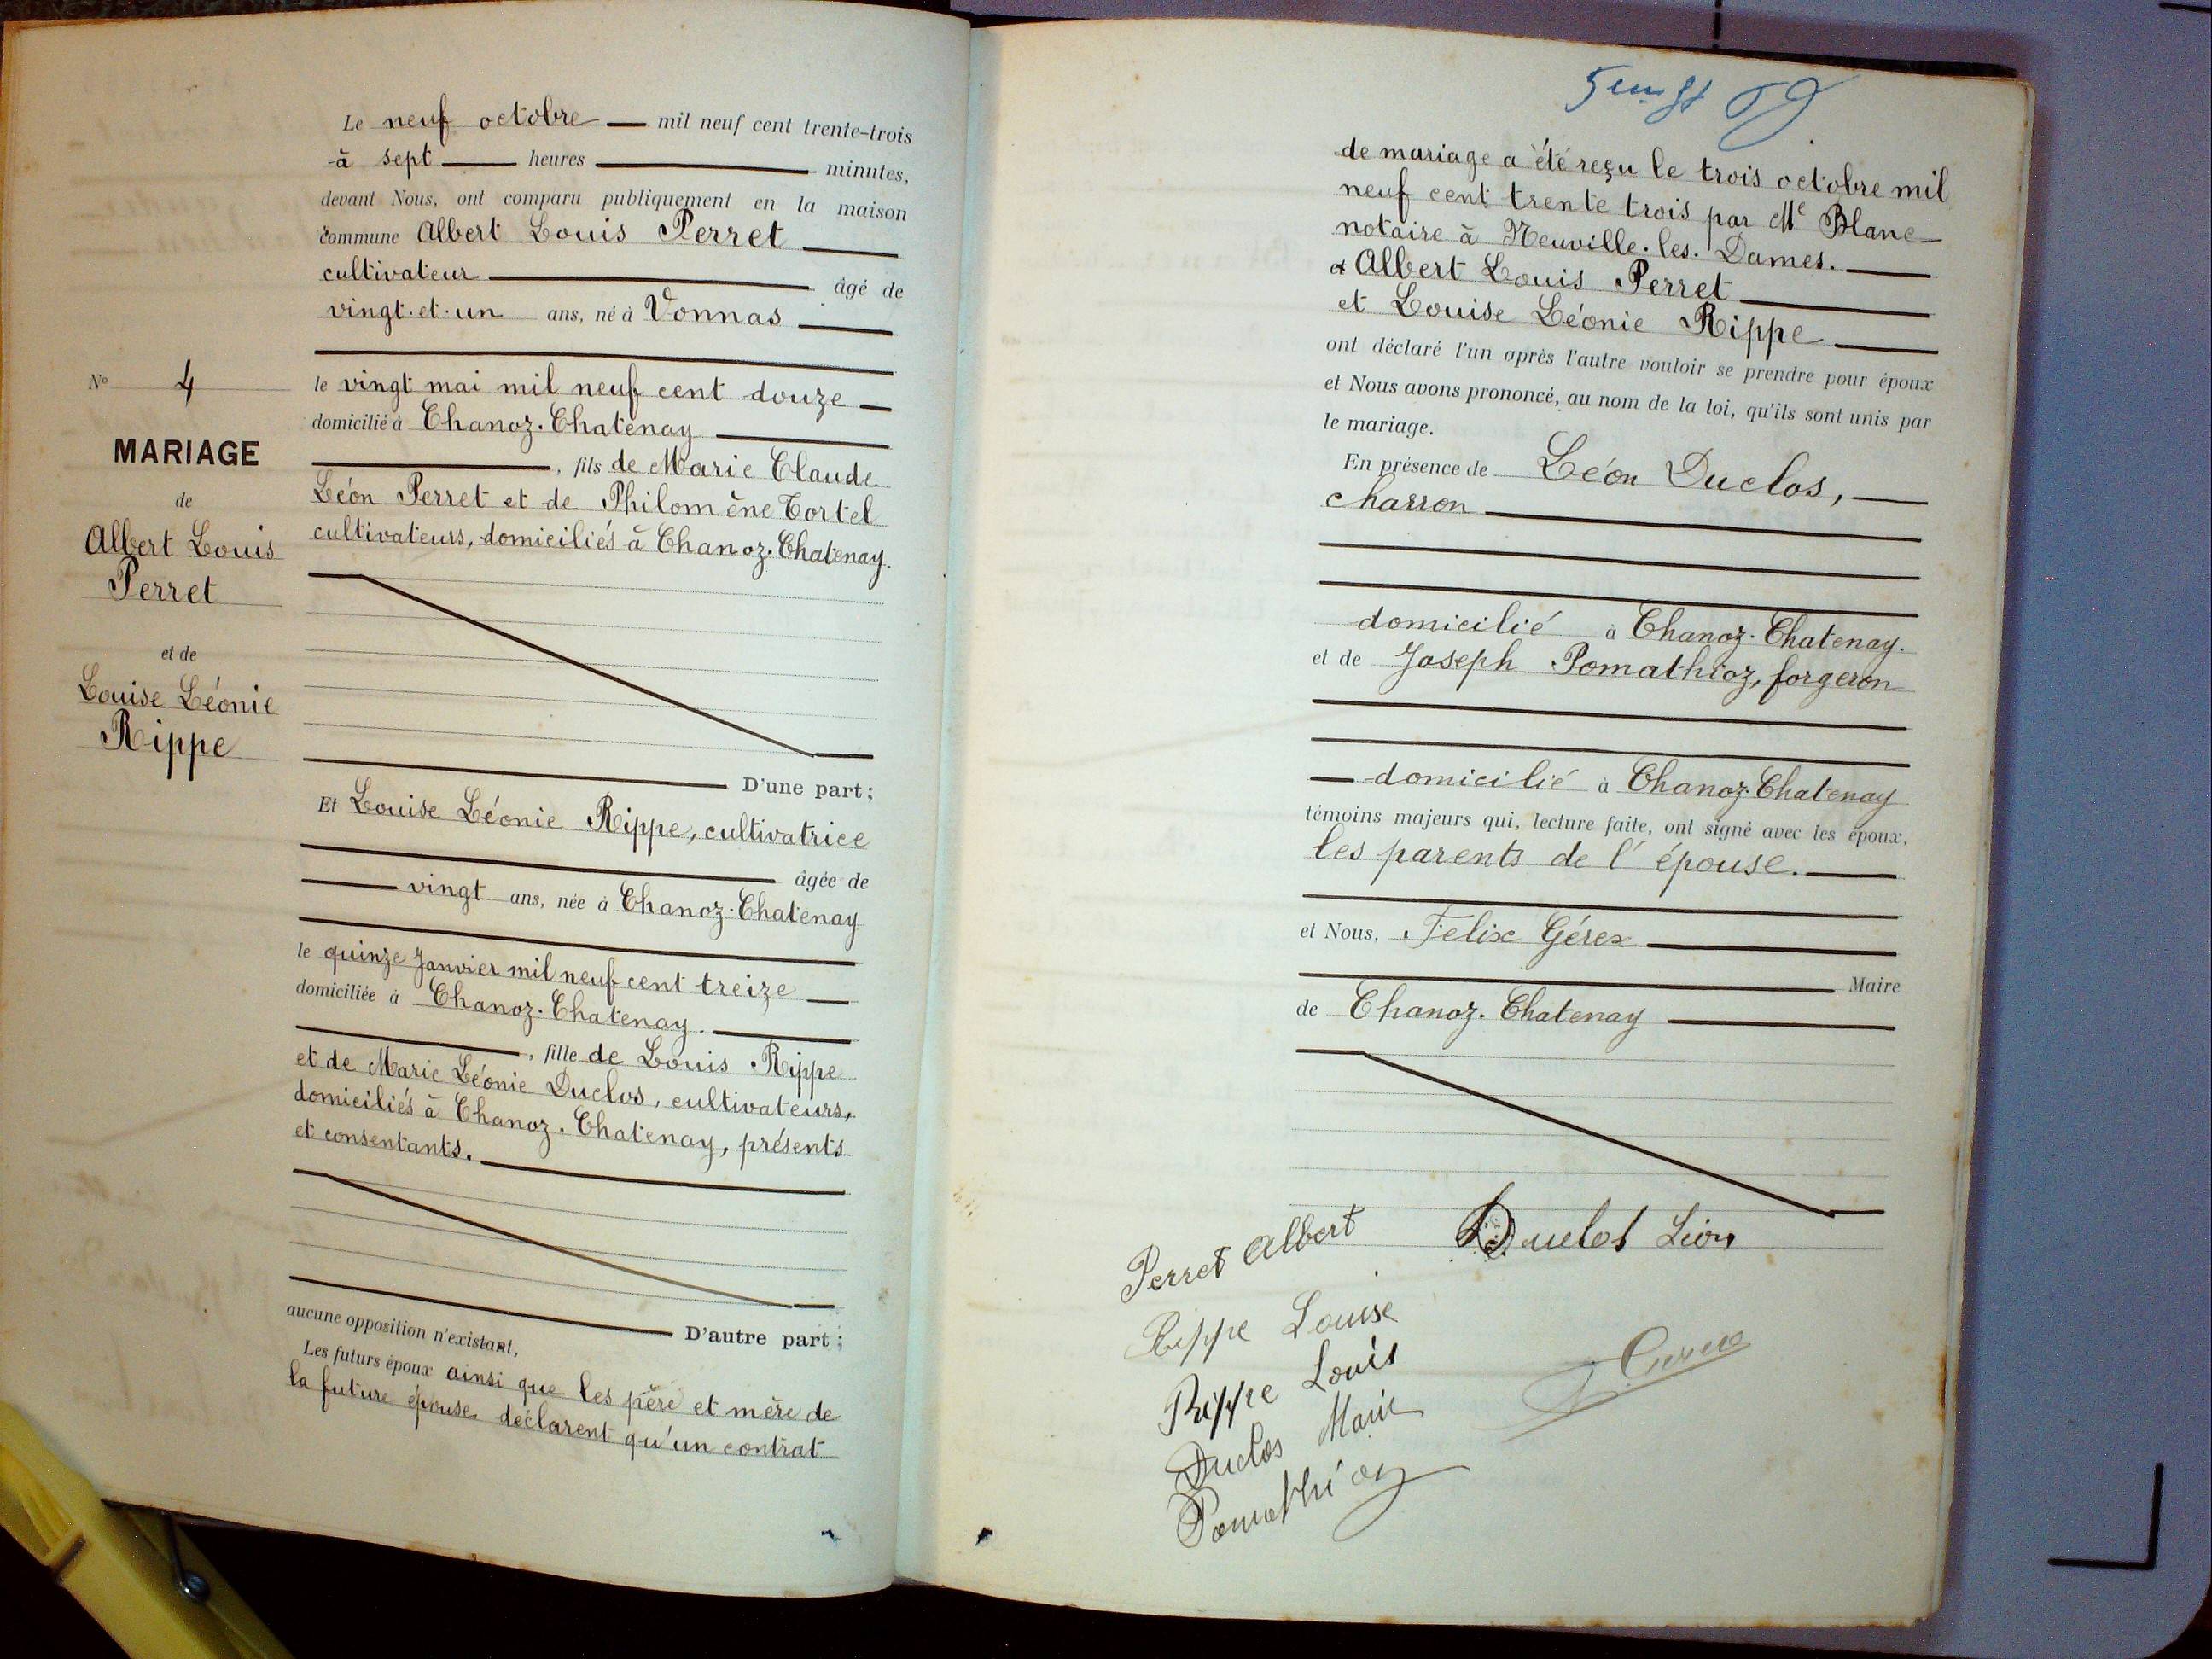 Le neuf octobre mil neuf cent trente-trois
à sept heures minutes,
devant Nous, ont comparu publiquement en la maison
commune Albert Louis Perret
cultivateur âgé de
vingt-et-un ans, né à Vonnas
le vingt mai mil neuf cent douze
domicilié à Chanoz-Chatenay
, fils de Marie Claude
Léon Perret et de Philomène Tortel
cultivateurs, domiciliés à Chanoz-Chatenay.
D'une part;
Et Louise Léonie Rippe, cultivatrice
âgée de
vingt ans, née à Chanoz-Chatenay
le quinze Janvier mil neuf cent treize
domiciliée à Chanoz-Chatenay.
, fille de Louis Rippe
et de Marie Léonie Duclos, cultivateurs,
domiciliés à Chanoz-Chatenay, présents
et consentants.
D'autre part;
aucune opposition n'existant,
Les futurs époux ainsi que les père et mère de
la future épouse déclarent qu'un contrat
No 4
MARIAGE
de
Albert Louis
Perret
et de
Louise Léonie
Rippe
de mariage a été reçu le trois octobre mil
neuf cent trente trois par Me Blanc
notaire à Neuville-les-Dames.
Albert Louis Perret
et Louise Léonie Rippe
ont déclaré l'un après l'autre vouloir se prendre pour époux
et Nous avons prononcé, au nom de la loi, qu'ils sont unis par
le mariage.
En présence de Léon Duclos,
charron
domicilié à Chanoz-Chatenay.
et de Joseph Pomathioz, forgeron
domicilié à Chanoz-Chatenay
témoins majeurs qui, lecture faite, ont signé avec les époux.
les parents de l'épouse.
et Nous, Felix Gérex
Maire
de Chanoz-Chatenay
Perret Albert
Duclos Léon
Rippe Louise
Rippe Louis
Duclos Marie
Pomathioz